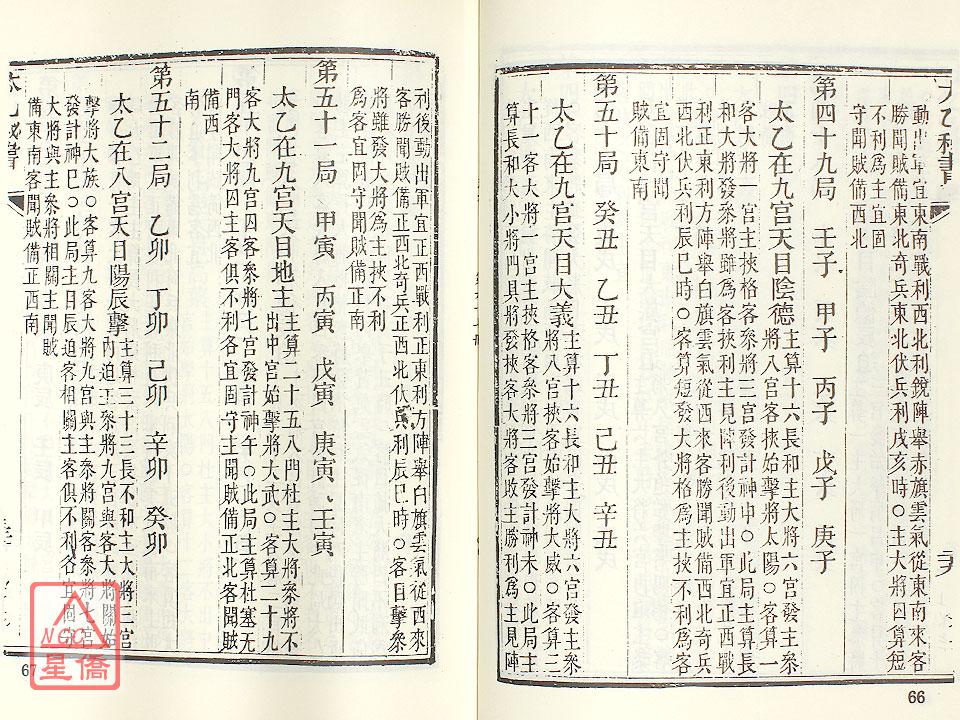 動出軍宜東南戰利西北利銳陣舉赤旗雲氣從東南來客
勝聞賊備東北奇兵東北伏兵利戌亥時○主大將囚算短
不利為主宜固
守聞賊備西北
第四十九局 壬子 甲子 丙子 戊子 庚子
太乙在九宮天目陰德
主算十六長和主大將六宮發主參
將八宮客挾始擊將太陽○客算一
客大將一宮主挾格客參將三宮發計神申○此局主算長
和大將發參將雖為客挾利主見陣利後動出軍宜正西戰
利正東利方陣舉白旗雲氣從西來客勝聞賊備西北奇兵
西北伏兵利辰巳時○客算短發大將格為主挾不利為客
宜固守聞
賊備東南
第五十局 癸丑 乙丑 丁丑 己丑 辛丑
太乙在九宮天目大義
主算十六長和主大將六宮發主參
將八宮挾客始擊將大威○客算二
十一客大將一宮主挾格客參將三宮發計神未○此局主
算長和大小將門具將發挾客大將客敗主勝利為主見陣
利後動出軍宜正西戰利正東利方陣舉白旗雲氣從西來
客勝聞賊備正西北奇兵正西北伏兵利辰巳時○客目擊參
將雖發大將為主挾不利
為客宜固守聞賊備正南
第五十一局 甲寅 丙寅 戊寅 庚寅 壬寅
太乙在九宮天目地主
主算二十五八門杜主大將參將不
出中宮始擊將大武○客算二十九
客大將九宮囚客參將七宮發計神午○此局主算杜塞无
門客大將囚主客俱不利各宜固守主聞賊備正北客聞賊
備西
南
第五十二局 乙卯 丁卯 己卯 辛卯 癸卯
太乙在八宮天目陽辰擊
主算三十三長不和主大將三宮
內迫主參將九宮與客大將關始
擊將大族○客算九客大將九宮與主參將關客參將七宮
發計神巳○此局主目辰迫客相關主客俱不利各宜固守
大將與主參將相關主聞賊
備東南客聞賊備正西南
66
67
NCC
星僑